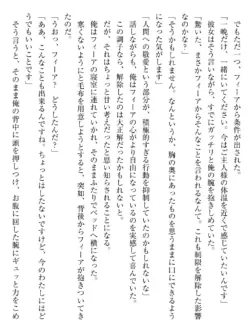 ただ一つ、フィーアから条件が出された。
「一晩だけ、一緒にいてください。ご主人様の体温を近くで感じていたいんです」
彼女はそう言いながらも、すでにガッチリと俺の腕を抱きしめていた。
「驚いた。まさかフィーアからそんなことを言われるなんて。これも制限を解除した影響
かな？」
「そうかもしれません。なんというか、胸の奥にあったものを思うままに口にできるよう
になった気がします」
「人間への敬愛という部分が、積極的すぎる行動を抑制していたのかもしれないな」
話しながらも、俺はフィーアの心がより自由になっているのを実感して嬉しく思った。
この調子なら、解除したのは大正解だったかもしれない。
だがそれでも、ちょっと甘い考えだったと思い知らされることになる。
俺はフィーアの寝室に連れていかれ、そのままふたりでベッドへ横になった。
寒くないようにと毛布を用意しようとすると、突如、背後からフィーアが抱きついてき
たのだ。
「うおっ、フィーア？　どうしたんだ？」
「あぁ、こんなことも出来るんですね。ちょっとはしたないですけど、今のわたしにはと
ても幸せです」
そう言うと、そのまま俺の背中に頭を押しつけ、お腹に回した腕にギュッと力をこめ